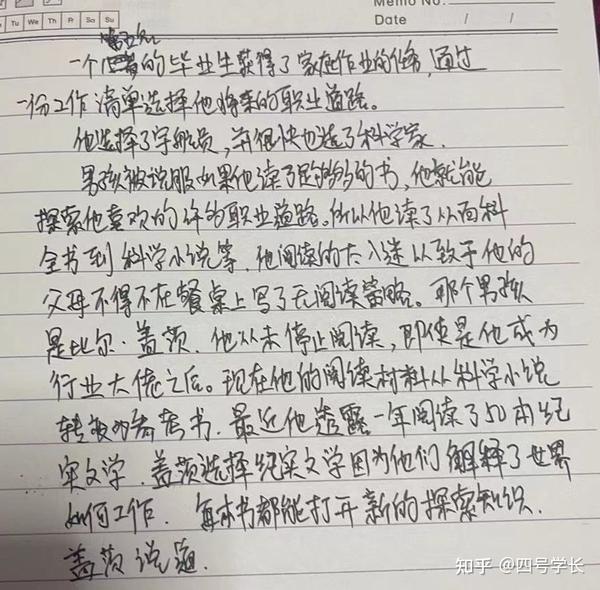 Memo No.
Tu We Th Fr Sa Su
Date / /
第五句
一个的毕业生获得了家庭作业的任务,通过
一份工作清单选择他将来的职业道路。
他选择了宇航员,并很快也选了科学家.
男孩被说服如果他读了足够多的书,他就能
探索他喜欢的许多职业道路。所以他读了从百科
全书到科学小说等.他阅读的太入迷以致于他的
父母不得不在餐桌上写了无阅读策略。那个男孩
是比尔·盖茨.他从未停止阅读,即使是他成为
行业大佬之后。现在他的阅读材料从科学小说
转变为参考书.最近他透露一年阅读了50本纪
实文学.盖茨选择纪实文学因为他们解释了世界
如何工作.每本书都能打开新的探索知识.
盖茨说道.
知乎 @四号学长